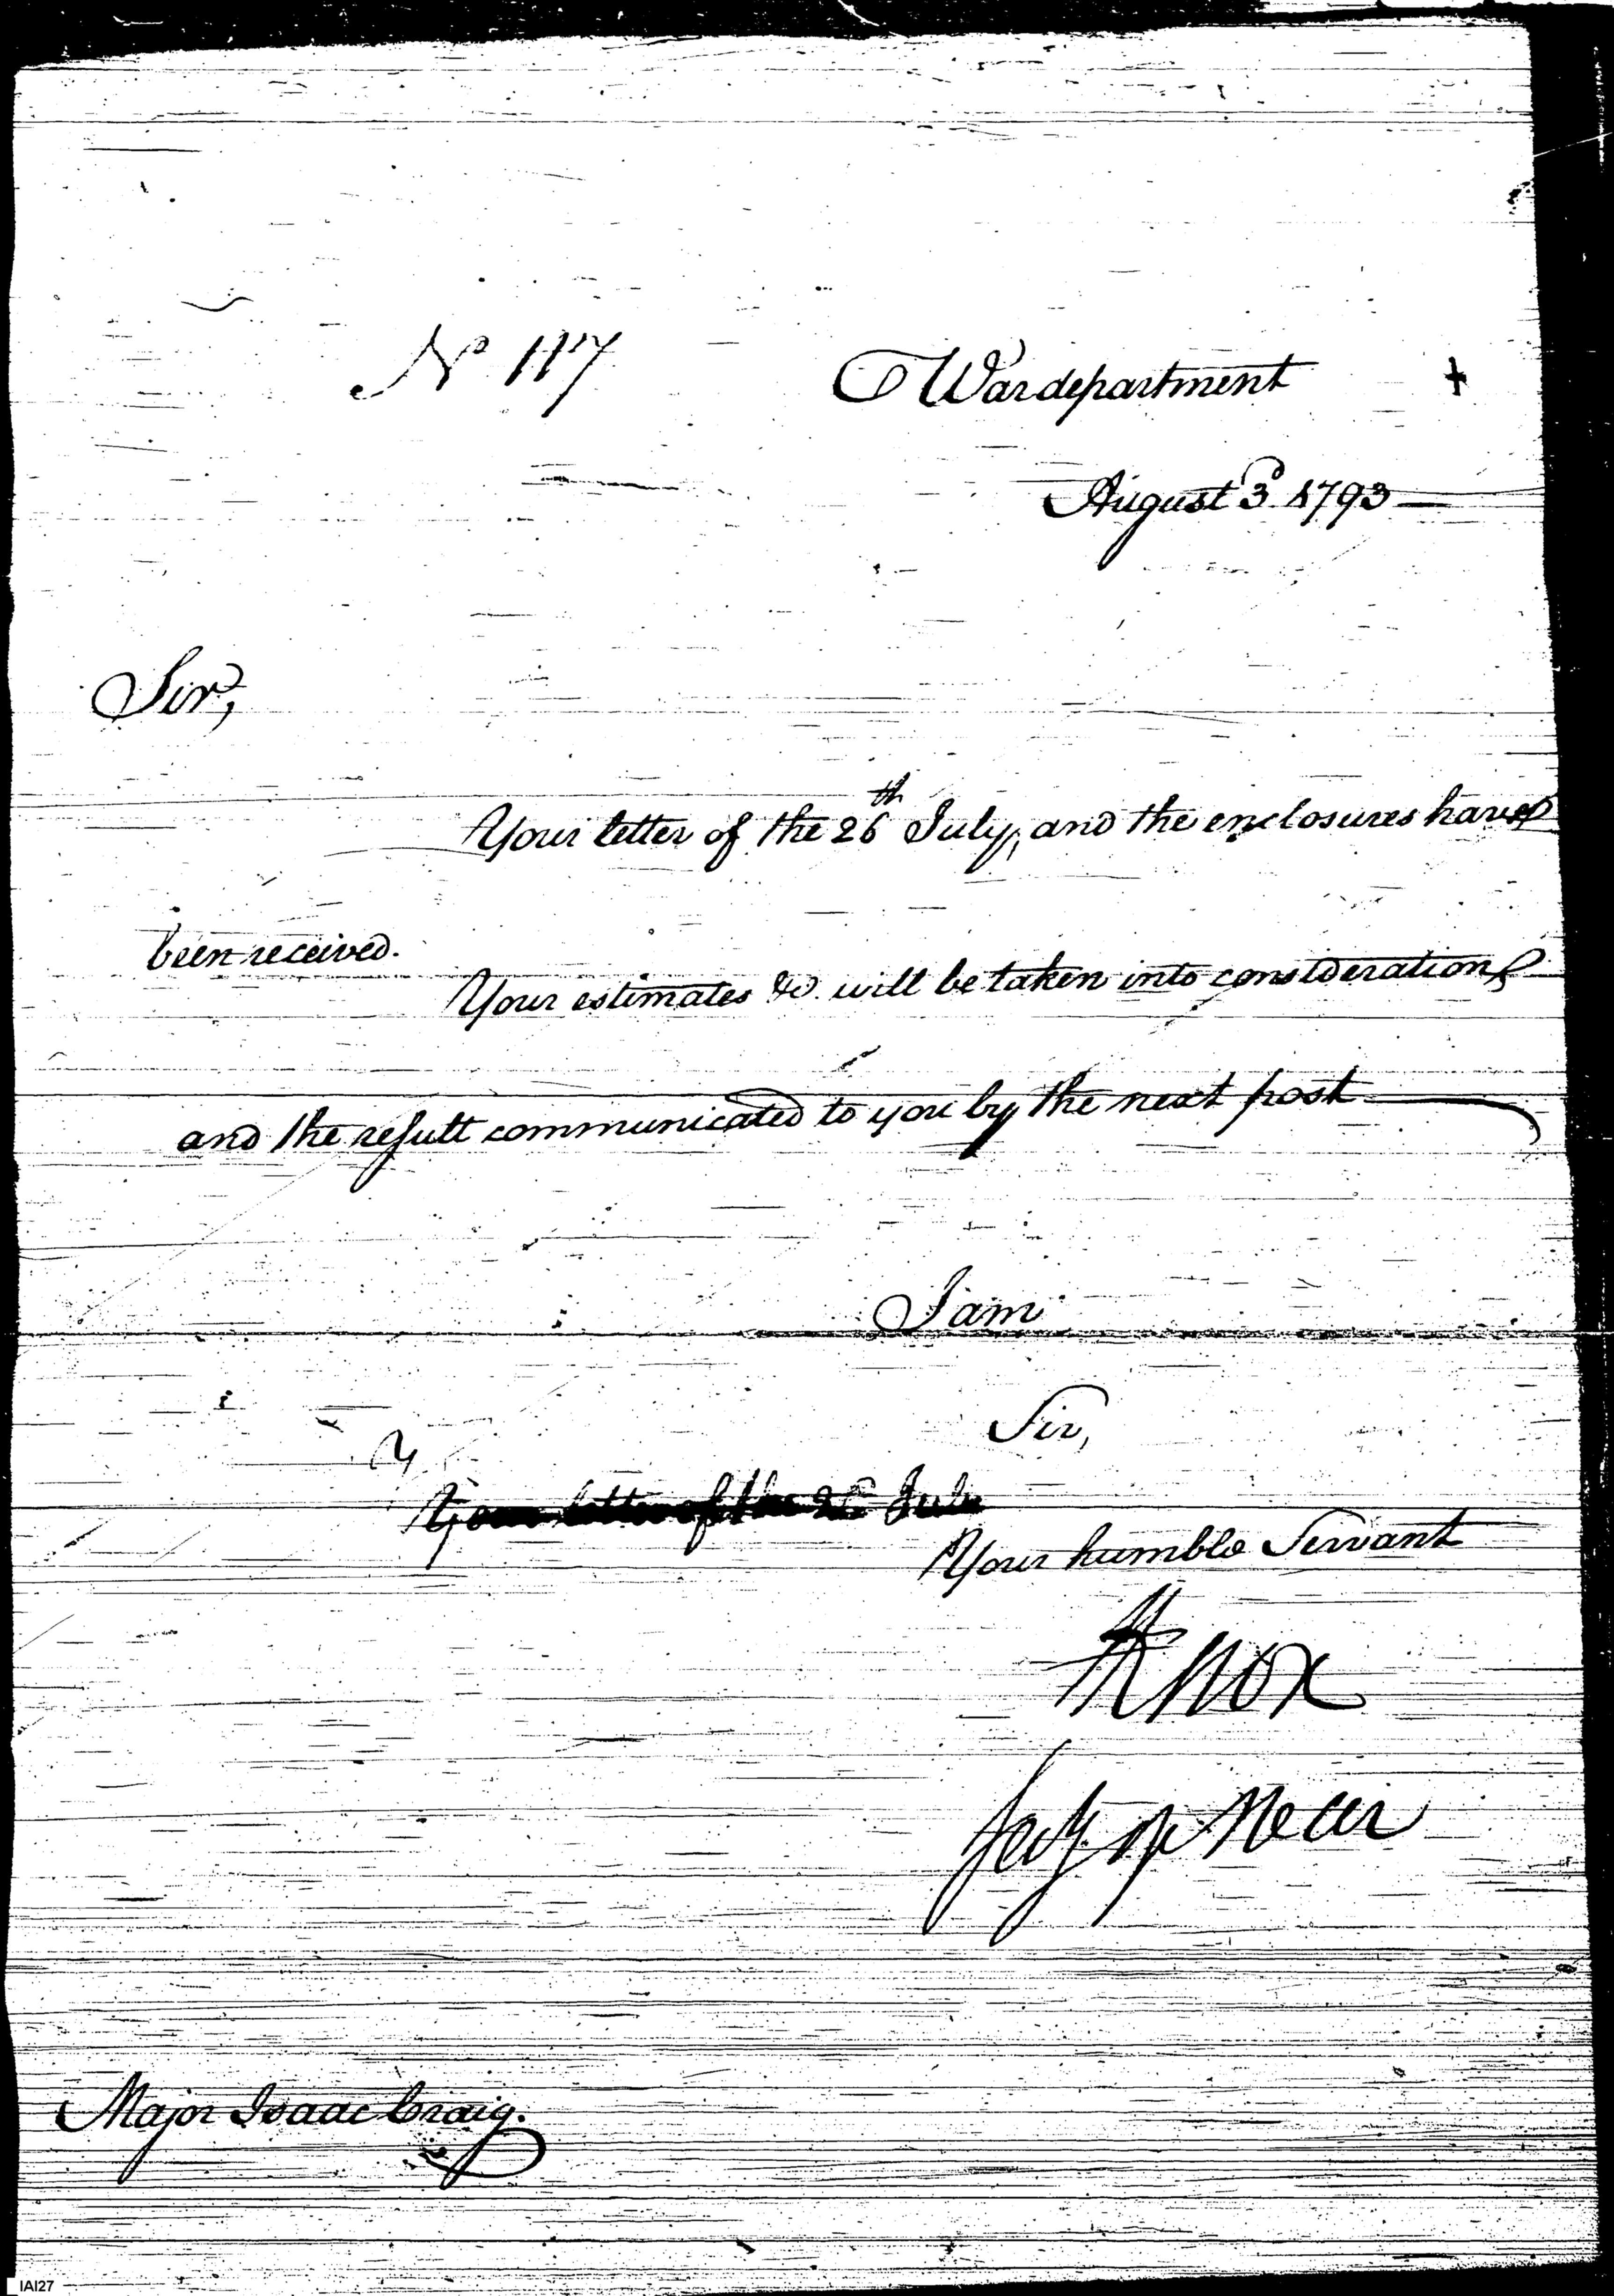 No 117
War department
August 3d 1793
Sir,
Your letter of the 26th July, and the enclosures have
been received.
Your estimates &c. will be taken into consideration
and the result communicated to you by the next post
I am
Sir,
Y
Your letter of the 26th July
Your humble Servant
HKnox
Secy of War
Major Isaac Craig.
IAI27